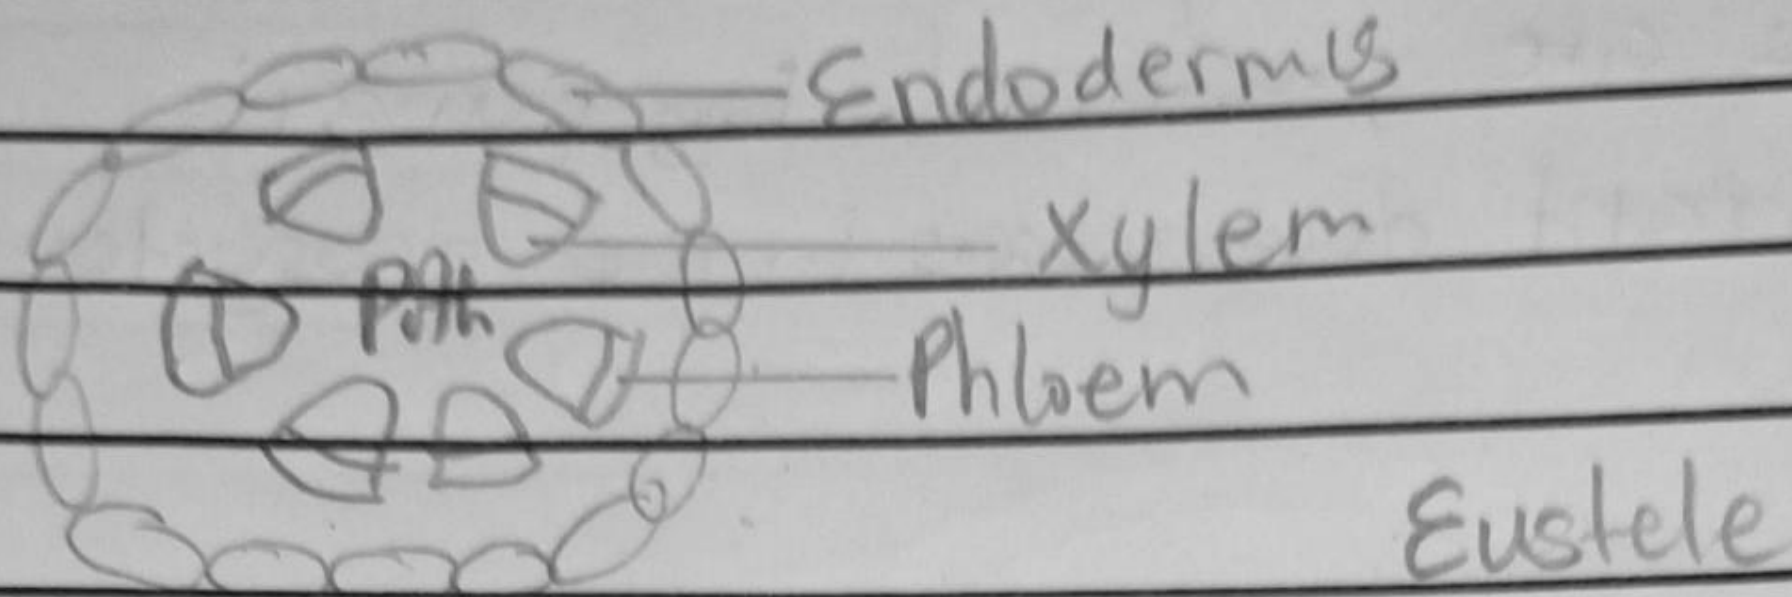 Endodermis
Xylem
Pith
Phloem
Eustele